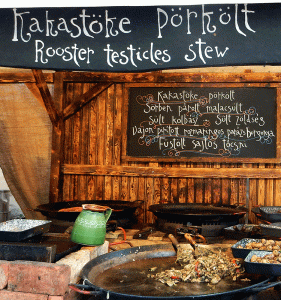 Kakastöke pörkölt
Rooster testicles stew
Kakastöke pörkölt
Sörben párolt malacsült
Sült kolbász Sült zöldség
Vajon pirított rozmaringos
Füstölt sajtos tócsni